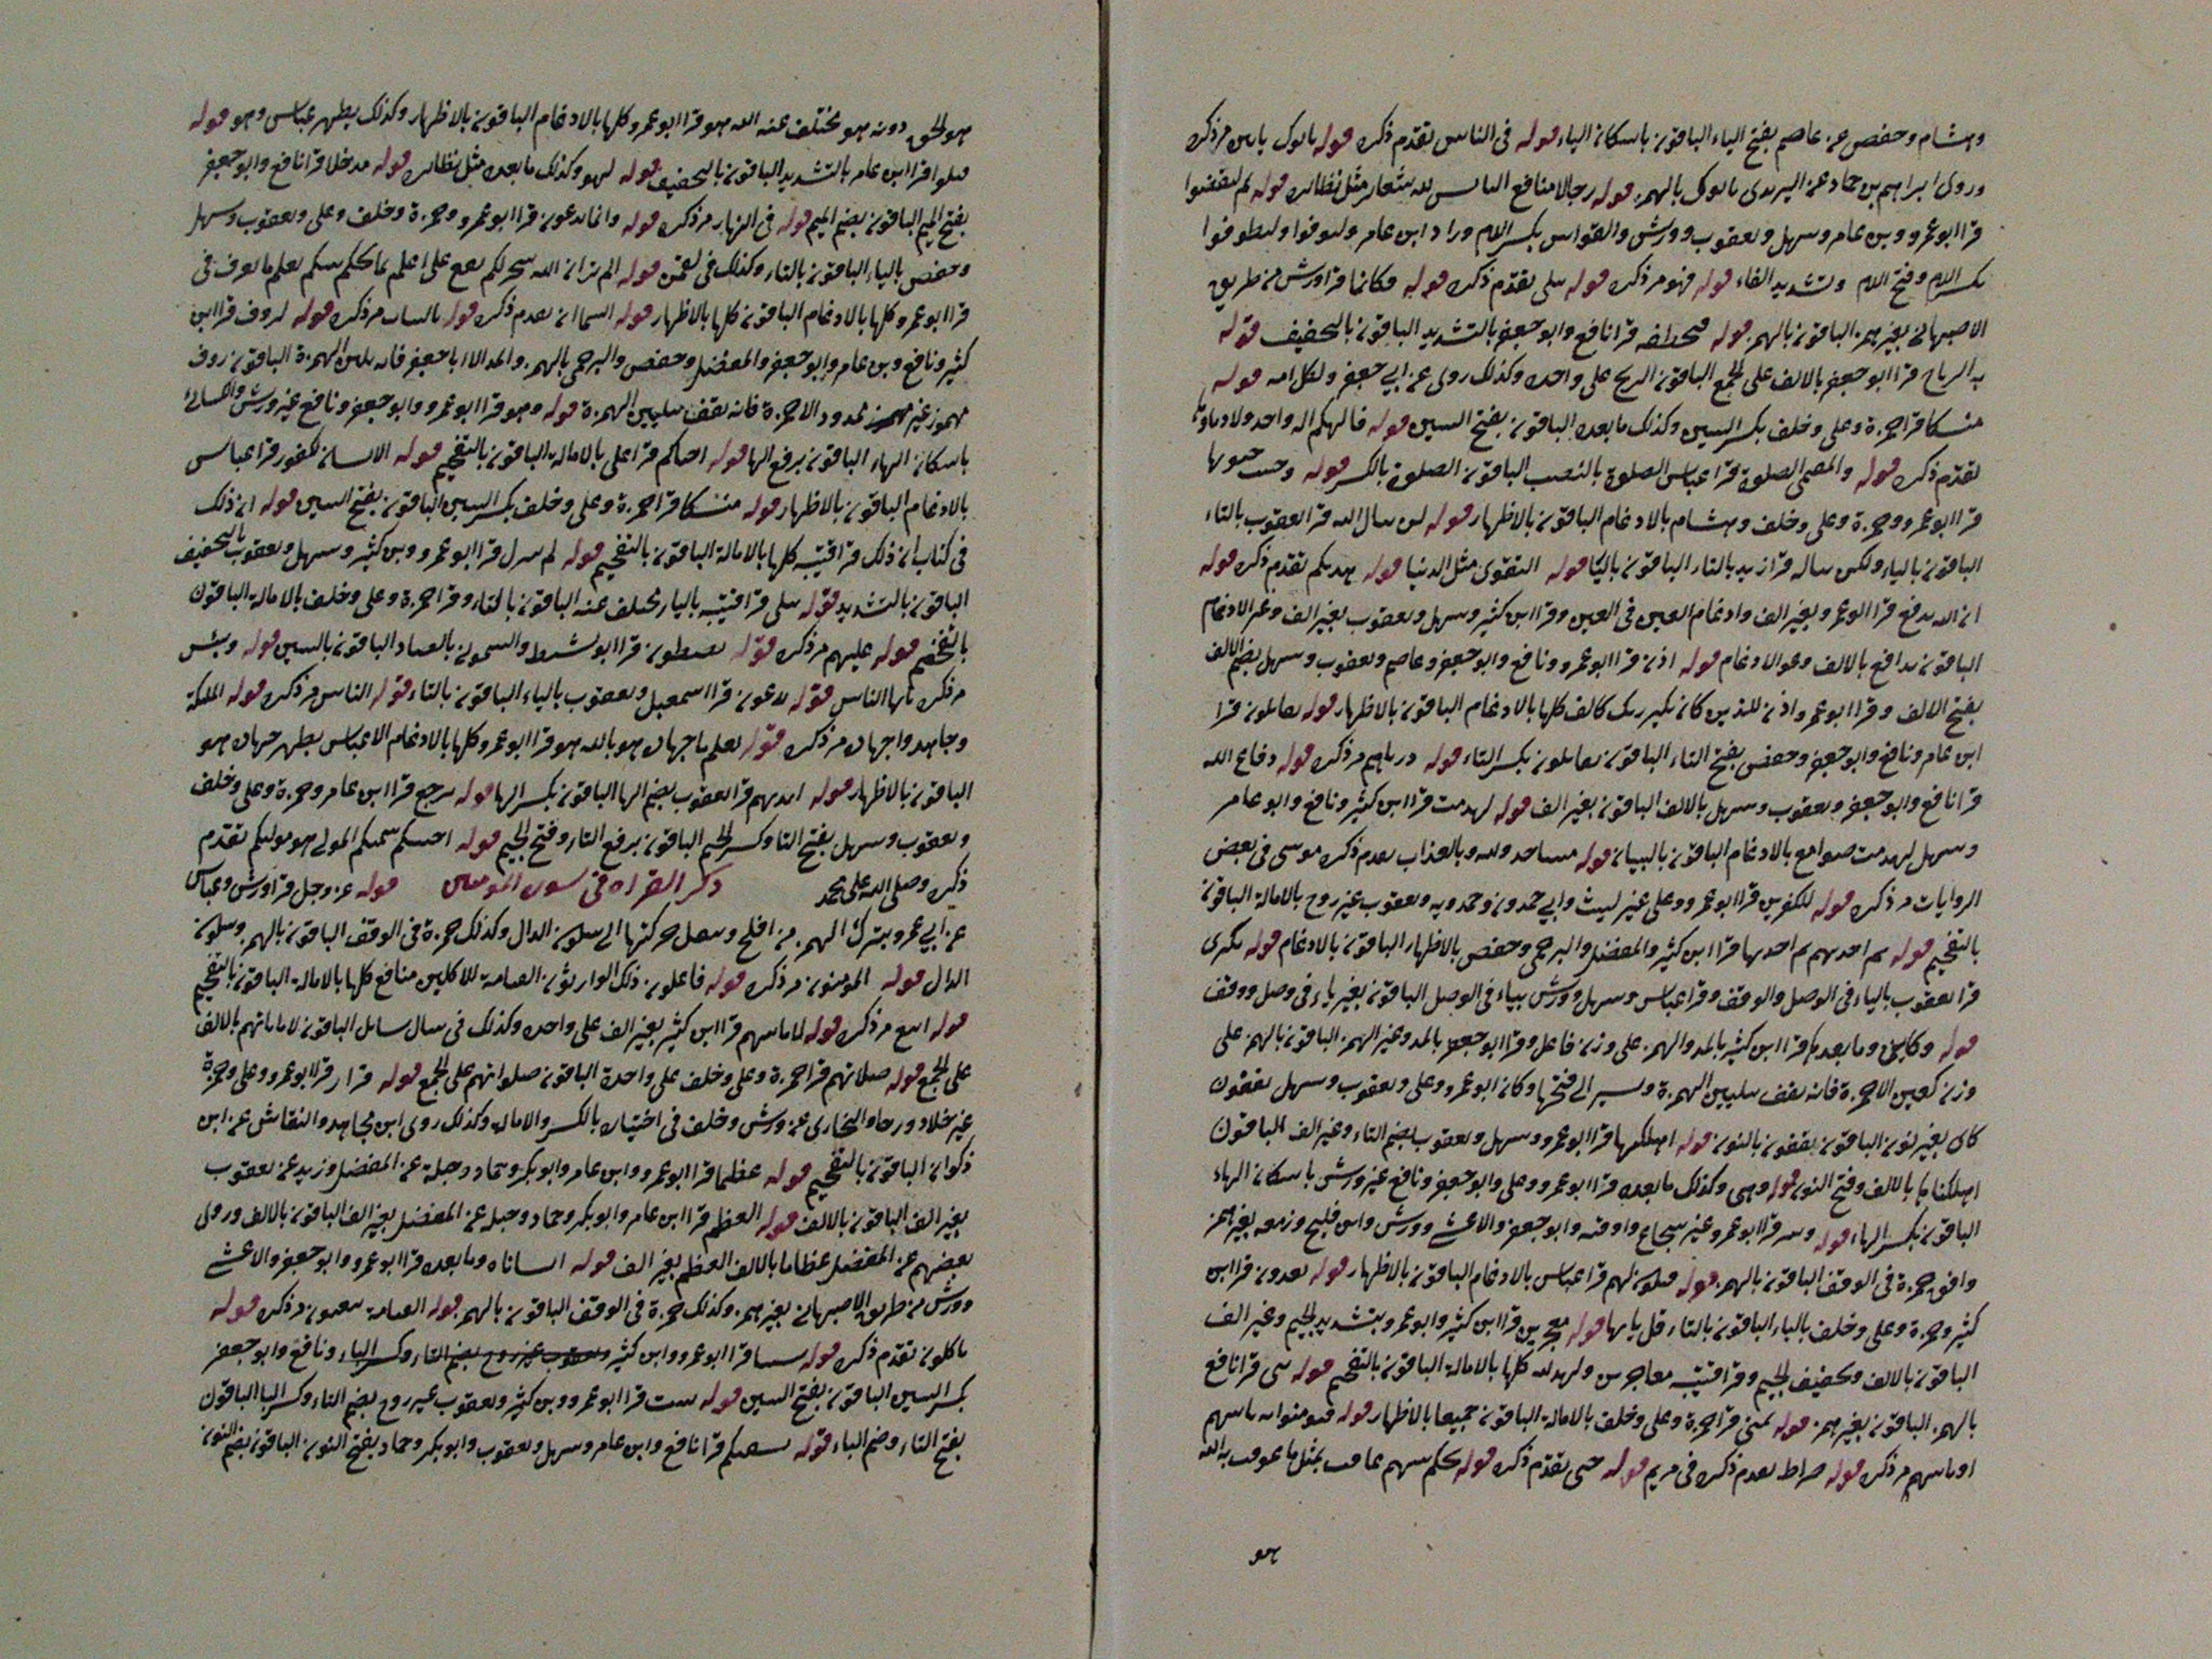 وهشام وحفص عن عاصم بفتح الياء الباقون باسكان الياء قوله في الناس تقدم ذكره قوله ياتوك ياتين مر ذكره
وروى ابراهيم بن حماد عن اليزيدي ياتوك بالهمز قوله رجالا منافع الباس لله شعائر مثل نظائره قوله ثم ليقضوا
قرا ابو عمرو وبن عامر وسهل ويعقوب وورش والقواس بكسر اللام وزاد ابن عامر وليوفوا وليطوفوا
بكسر اللام وفتح اللام وتشديد الفاء قوله فهو مر ذكره قوله يتلى تقدم ذكره قوله فكانما قرا ورش من طريق
الاصبهاني بغير همز الباقون بالهمز قوله فتخطفه قرا نافع وابو جعفر بالتشديد الباقون بالتخفيف قوله
به الرياح قرا ابو جعفر بالالف على الجمع الباقون الريح على واحده وكذلك روى عن ابي جعفر ولكل امه قوله
منسكا قرا حمزة وعلى وخلف بكسر السين وكذلك ما بعده الباقون بفتح السين قوله فالهكم اله واحد ولا دماوها
تقدم ذكره قوله والمقيمي الصلوة قرا عباس الصلوة بالنصب الباقون الصلوة بالكسر قوله وجبت جنوبها
قرا ابو عمرو وحمزة وعلى وخلف وهشام بالادغام الباقون بالاظهار قوله لن ينال الله قرا يعقوب بالتاء
الباقون بالياء ولكن يناله قرا زيد بالتاء الباقون باليا قوله التقوى مثل الدنيا قوله هديكم تقدم ذكره قوله
ان الله يدفع قرا ابو عمرو بغير الف وادغام العين في العين وقرا ابن كثير وسهل ويعقوب بغير الف وغير الادغام
الباقون يدافع بالالف وغير الادغام قوله اذن قرا ابو عمرو ونافع وابو جعفر وعاصم ويعقوب وسهل بضم الالف
بفتح الالف وقرا ابو عمرو اذن للذين كان نكير ربك كالف كلها بالادغام الباقون بالاظهار قوله يقاتلون قرا
ابن عامر ونافع وابو جعفر وحفص بفتح التاء الباقون يقاتلون بكسر التاء قوله ديارهم مر ذكره قوله دفاع الله
قرا نافع وابو جعفر ويعقوب وسهل بالالف الباقون بغير الف قوله لهدمت قرا ابن كثير ونافع وابو عامر
وسهل لهدمت صوامع بالادغام الباقون بالبيان قوله مساجد ولله وبالعذاب تقدم ذكره موسى في بعض
الروايات مر ذكره قوله للكفرين قرا ابو عمرو وعلى غير ليث وابي حمدون وحمدويه ويعقوب غير روح بالامالة الباقون
بالتفخيم قوله ثم اخذتهم ثم اخذتها قرا ابن كثير والمفضل والبرجمي وحفص بالاظهار الباقون بالادغام قوله نكيري
قرا يعقوب بالياء في الوصل والوقف وقرا عباس وسهل وورش بياء في الوصل الباقون بغير ياء في وصل ووقف
قوله وكاين وما بعده قرا ابن كثير بالمد والهمز على وزن فاعل وقرا ابو جعفر بالمد وغير الهمز الباقون بالهمز على
وزن كعين الا حمزة فانه يقف بتليين الهمزة ويسير الى فتحها وكان ابو عمرو وعلى ويعقوب وسهل يقفون
كاي بغير نون الباقون يقفون بالنون قوله اهلكتها قرا ابو عمرو وسهل ويعقوب بضم التاء وغير الف الباقون
اهلكناها بالالف وفتح النون قوله وهي وكذلك ما بعده قرا ابو عمرو وعلى وابو جعفر ونافع غير ورش باسكان الهاء
الباقون بكسر الهاء قوله وبير قرا ابو عمرو غير شجاع واوقيه وابو جعفر والاعشى وورش وابن فليح وزمعه بغير همز
وافق حمزة في الوقف الباقون بالهمز قوله فتكون لهم قرا عباس بالادغام الباقون بالاظهار قوله تعدون قرا ابن
كثير وحمزة وعلى وخلف بالياء الباقون بالتاء قل يايها قوله معجزين قرا ابن كثير وابو عمرو بتشديد الجيم وغير الف
الباقون بالالف وتخفيف الجيم وقرا قتيبه معاجزين ولهد لله كلها بالامالة الباقون بالتفخيم قوله نبى قرا نافع
بالهمز الباقون بغير همز قوله تمنى قرا حمزة وعلى وخلف بالامالة الباقون جميعا بالاظهار قوله فيومنوا به ياتيهم
او ياتيهم مر ذكره قوله صراط تقدم ذكره في مريم قوله حتى تقدم ذكره قوله يحكم بينهم عاقب بمثل ما عوقب به الله
هو
هو الحق دونه هو يختلف عنه الله هو قرا ابو عمرو كلها بالادغام الباقون بالاظهار وكذلك يظهر عباس وهو قوله
قتلوا قرا ابن عامر بالتشديد الباقون بالتخفيف قوله لهو وكذلك ما بعده مثل نظائره قوله مدخلا قرا نافع وابو جعفر
بفتح الميم الباقون بضم الميم قوله في النهار مر ذكره قوله وانما يدعون قرا ابو عمرو وحمزة وخلف وعلى ويعقوب وسهل
وحفص بالياء الباقون بالتاء وكذلك في لقمن قوله الم تر ان الله سخر لكم يقع على اعلم بما يحكم بينكم يعلم ما تعرف في
قرا ابو عمرو كلها بالادغام الباقون كلها بالاظهار قوله السما ان تقدم ذكره قوله بالناس مر ذكره قوله لروف قرا ابن
كثير ونافع وبن عامر وابو جعفر والمفضل وحفص والبرجمي بالهمز والمد الا ابا جعفر فانه يلين الهمزة الباقون روف
مهموز غير ممدود الا حمزة فانه يقف بتليين الهمزة قوله وهو قرا ابو عمرو وابو جعفر ونافع غير ورش والكسائي
باسكان الهاء الباقون برفع الها قوله احياكم قرا على بالامالة الباقون بالتفخيم قوله الانسان لكفور قرا عباس
بالادغام الباقون بالاظهار قوله منسكا قرا حمزة وعلى وخلف بكسر السين الباقون بفتح السين قوله ان ذلك
في كتاب ان ذلك قرا قتيبه كلها بالامالة الباقون بالتفخيم قوله لم ينزل قرا ابو عمرو وبن كثير وسهل ويعقوب بالتخفيف
الباقون بالتشديد قوله يتلى قرا قتيبه بالياء يختلف عنه الباقون بالتاء وقرا حمزة وعلى وخلف بالامالة الباقون
بالتفخيم قوله عليهم مر ذكره قوله يسطون قرا ابو نشيط والشموني بالصاد الباقون بالسين قوله وبئس
مر ذكره يايها الناس قوله تدعون قرا اسمعيل ويعقوب بالياء الباقون بالتاء قوله الناس مر ذكره قوله الملئكة
وجاهدوا جهاده مر ذكره قوله يعلم ما جهاده هو بالله هو قرا ابو عمرو كلها بالادغام الا عباس يظهر جهاده هو
الباقون بالاظهار قوله ايديهم قرا يعقوب بضم الها الباقون بكسر الها قوله ترجع قرا ابن عامر وحمزة وعلى وخلف
ويعقوب وسهل بفتح التا وكسر الجيم الباقون برفع التاء وفتح الجيم قوله اجتبيكم سميكم المولى هو موليكم تقدم
ذكره وصلى الله على محمد ذكر القراه في سورة المومنين قوله عز وجل قرا ورش وعباس
عن ابي عمرو بترك الهمز من افلح وينقل حركتها الى سكون الدال وكذلك حمزة في الوقف الباقون بالهمز وسكون
الدال قوله المومنون مر ذكره قوله فاعلون ذلك الوارثون القيامة للاكلين منافع كلها بالامالة الباقون بالتفخيم
قوله مر ذكره قوله لاماناتهم قرا ابن كثير بغير الف على واحده وكذلك في سال سائل الباقون لاماناتهم بالالف
على الجمع قوله صلاتهم قرا حمزة وعلى وخلف على واحدة الباقون صلواتهم على الجمع قوله قرار قرا ابو عمرو وعلى وحمزة
غير خلاد ورجا والنجاري عن ورش وخلف في اختياره بالكسر والامالة وكذلك روى ابن مجاهد والنقاش عن ابن
ذكوان الباقون بالتفخيم قوله عظما قرا ابو عمرو وابن عامر وابو بكر وحماد وجبلة عن المفضل وزيد عن يعقوب
بغير الف الباقون بالالف قوله العظم قرا ابن عامر وابو بكر وحماد وجبله عن المفضل بغير الف الباقون بالالف وروى
بعضهم عن المفضل عظاما بالالف العظم بغير الف قوله انشاناه وما بعده قرا ابو عمرو وابو جعفر والاعشى
وورش من طريق الاصبهاني بغير همز وكذلك حمزة في الوقف الباقون بالهمز قوله القيامة تبعثون مر ذكره قوله
ياكلون تقدم ذكره قوله سينا قرا ابو عمرو وابن كثير ويعقوب غير روح بضم التاء وكسر الباء ونافع وابو جعفر
بكسر السين الباقون بفتح السين قوله تنبت قرا ابو عمرو وبن كثير ويعقوب غير روح بضم التاء وكسر البا الباقون
بفتح التاء وضم الباء قوله نسقيكم قرا نافع وابن عامر وسهل ويعقوب وابو بكر وحماد بفتح النون الباقون بضم النون